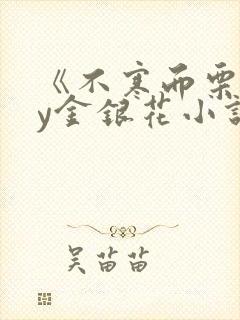 《不寒而栗
y金银花小说
吴苗苗